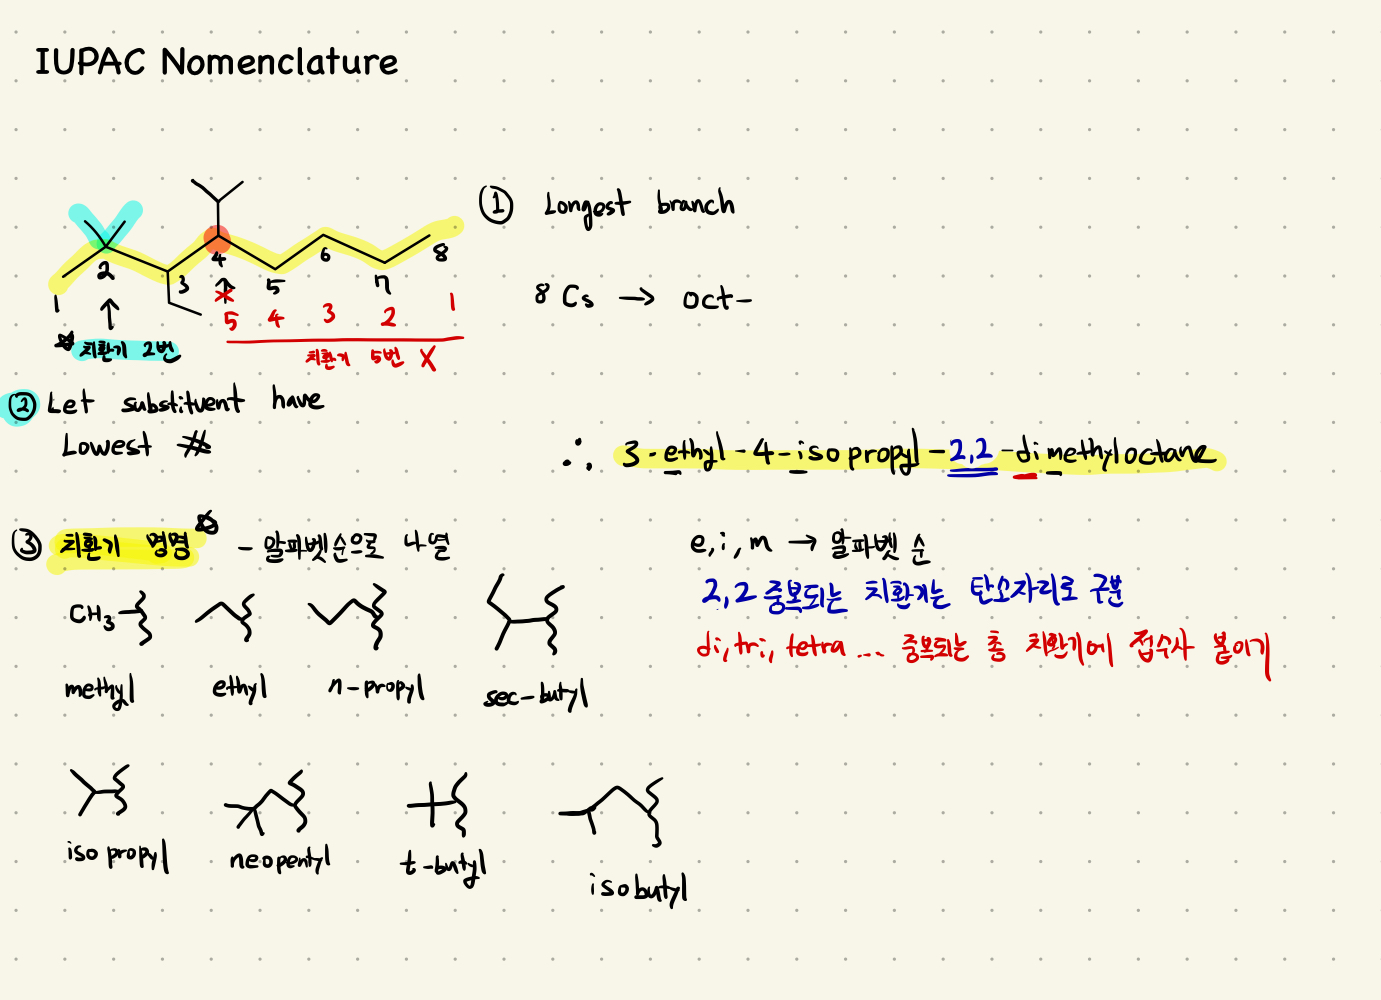 IUPAC Nomenclature
① Longest branch
8 Cs → oct-
1 2 3 4 5 6 7 8
5 4 3 2 1
치환기 2번
치환기 5번 X
② Let substituent have
Lowest #
∴ 3-ethyl-4-isopropyl-2,2-dimethyloctane
③ 치환기 명명 - 알파벳순으로 나열
e, i, m → 알파벳 순
2,2 중복되는 치환기는 탄소자리로 구분
di, tri, tetra ... 중복되는 총 치환기에 접수사 붙이기
CH3
methyl ethyl n-propyl sec-butyl
isopropyl neopentyl t-butyl isobutyl